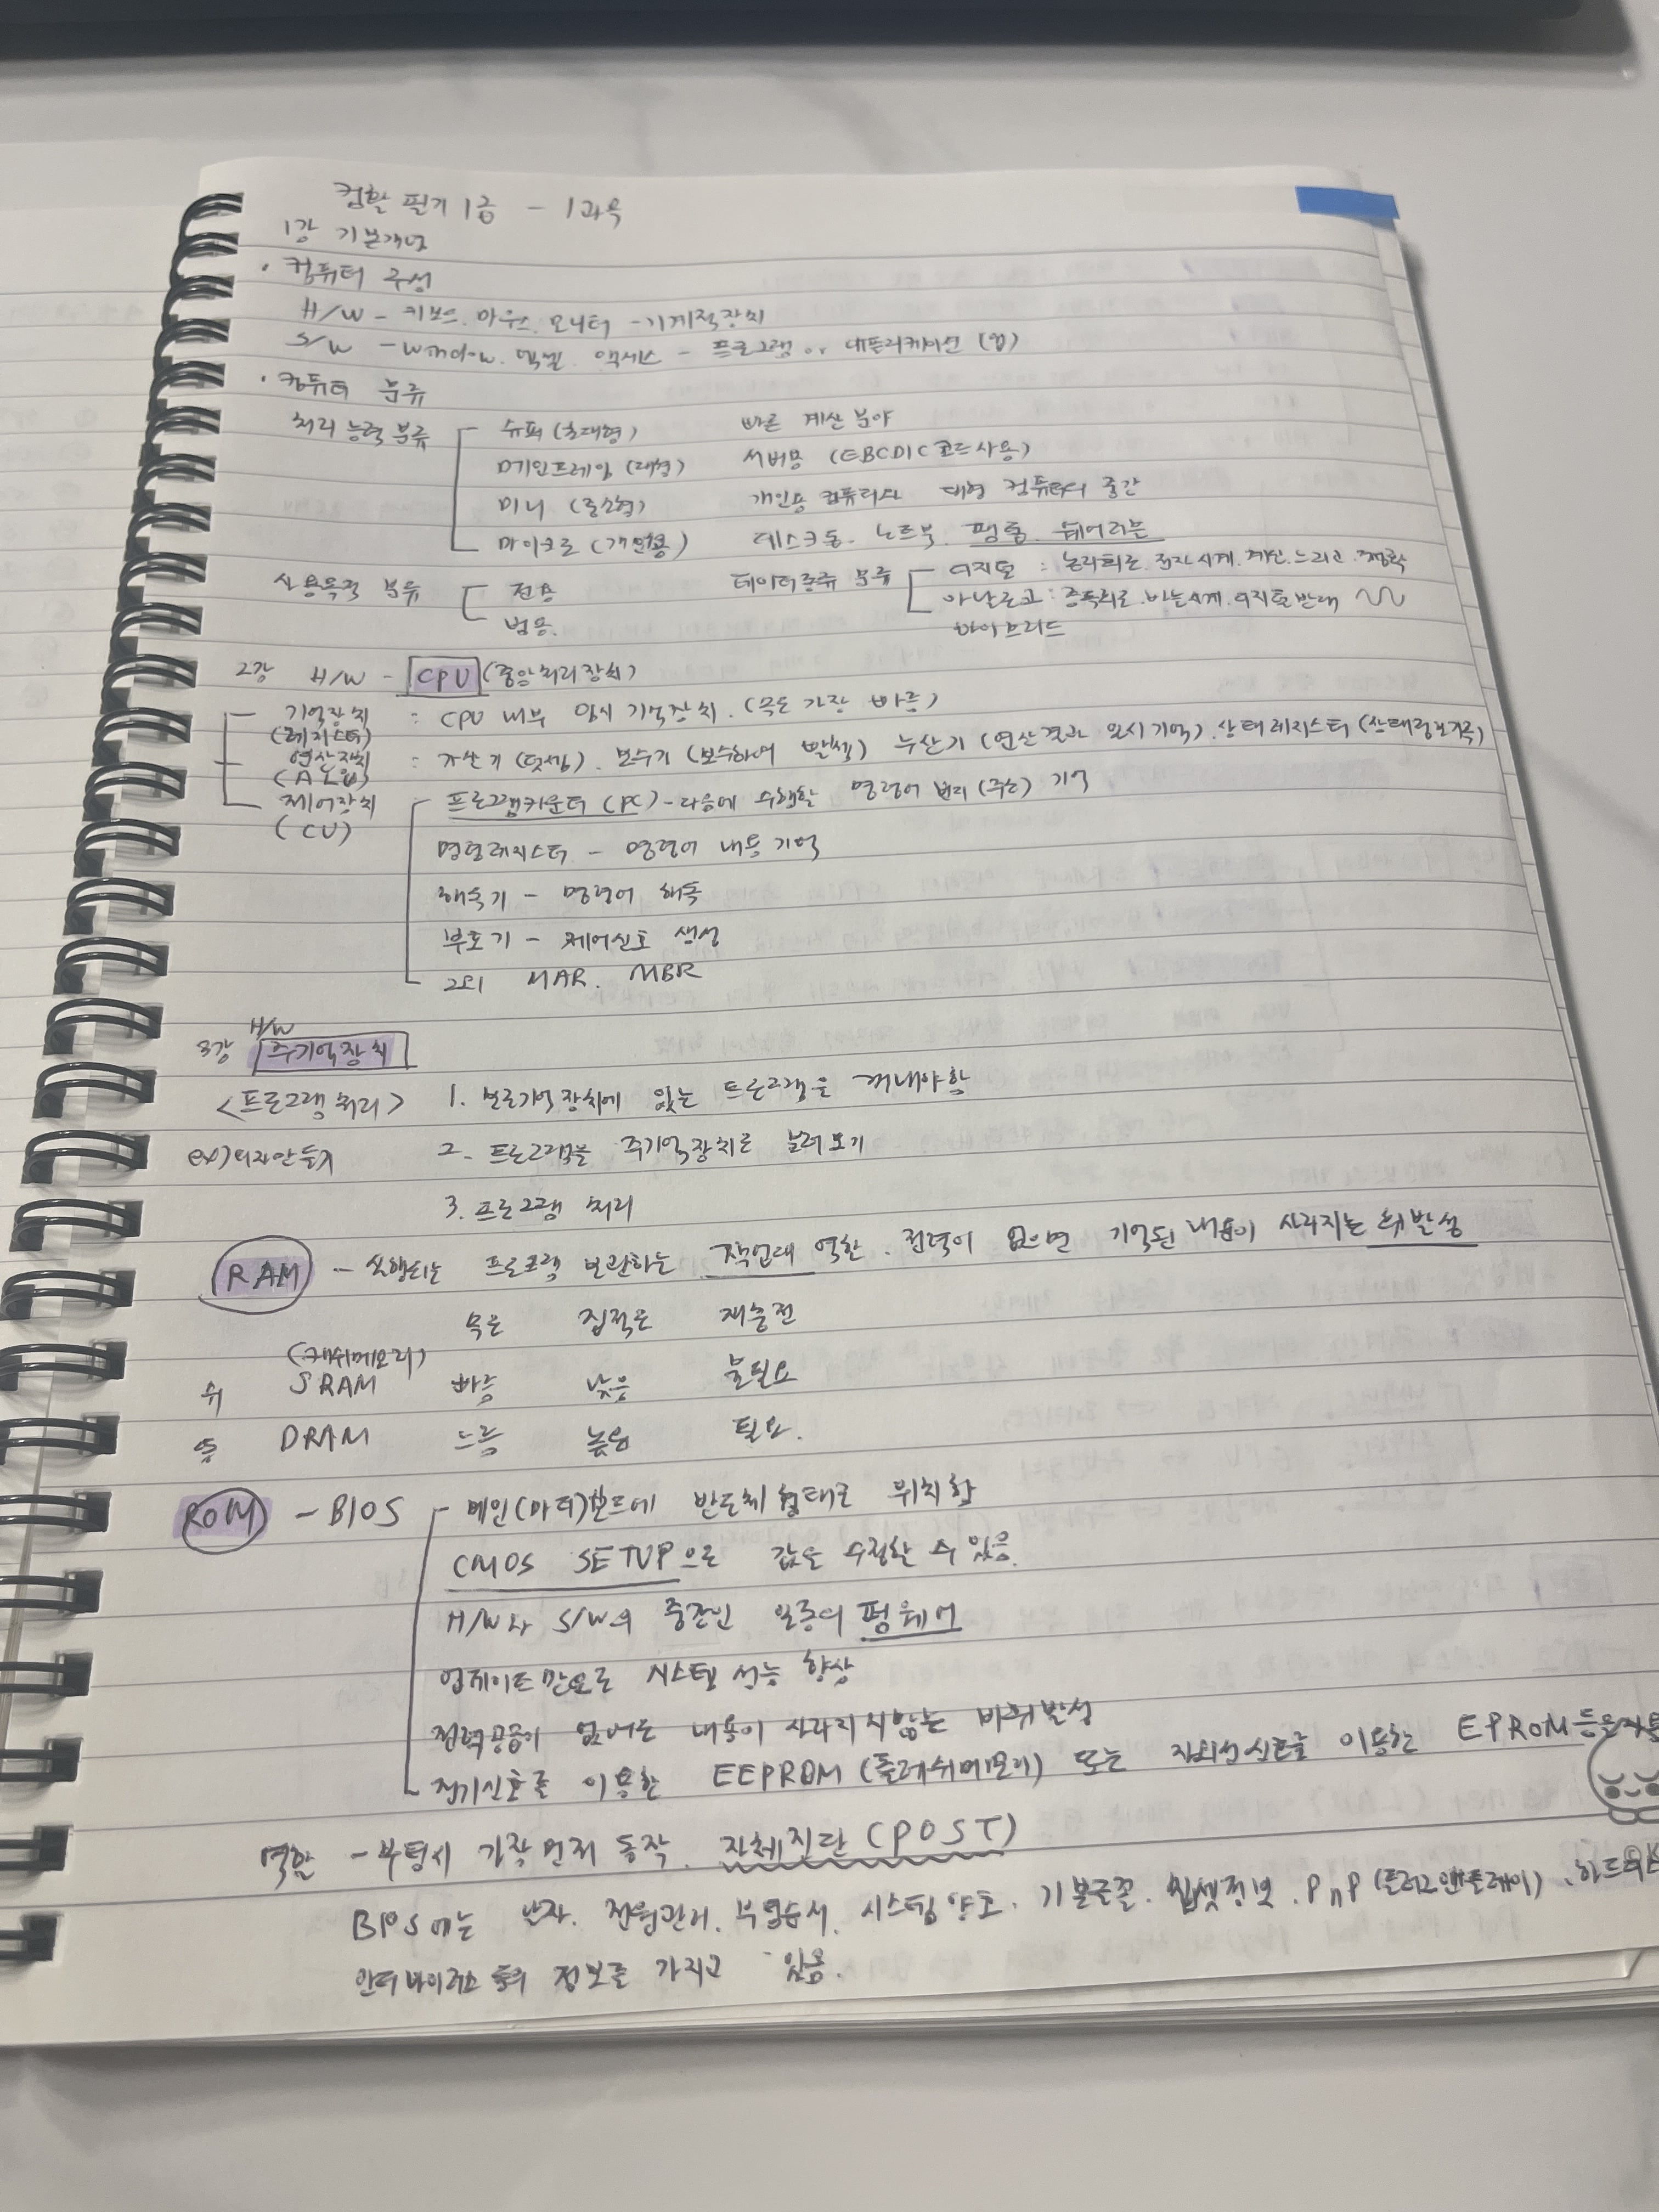 컴활 필기 1급 - 1과목
1강 기본개념
· 컴퓨터 구성
H/W - 키보드. 마우스. 모니터 - 기계적장치
S/W - Window. 엑셀. 액세스 - 프로그램 or 애플리케이션 (앱)
· 컴퓨터 분류
처리 능력 분류 슈퍼 (초대형) 빠른 계산 분야
메인프레임 (대형) 서버용 (EBCDIC 코드사용)
미니 (중소형) 개인용 컴퓨터와 대형 컴퓨터의 중간
마이크로 (개인용) 데스크톱. 노트북. 폰. 웨어러블
사용목적 분류 전용 데이터종류 분류 디지털 : 논리회로. 전자시계. 계산. 느리고.
범용. 아날로그 : 증폭회로. 바늘시계. 디지털반대
하이브리드
2강 H/W - CPU (중앙처리장치)
기억장치 : CPU 내부 임시 기억장치. (속도 가장 빠름)
(레지스터)
연산장치 : 가산기 (덧셈). 보수기 (보수하여 뺄셈) 누산기 (연산결과 일시기억). 상태레지스터 (상태정보기록)
제어장치 프로그램카운터 (PC) - 다음에 수행할 명령어 번지 (주소) 기억
(CU)
명령레지스터 - 명령어 내용 기억
해독기 - 명령어 해독
부호기 - 제어신호 생성
그외 MAR. MBR
H/W
3강 주기억장치
<프로그램 처리> 1. 보조기억장치에 있는 프로그램을 꺼내야함
2. 프로그램을 주기억장치로 불러오기
3. 프로그램 처리
RAM - 실행되는 프로그램 보관하는 작업대 역할. 전력이 없으면 기억된 내용이 사라지는 휘발성
속도 집적도 재충전
(캐쉬메모리)
SRAM 빠름 낮음 불필요
DRAM 느림 높음 필요.
ROM - BIOS 메인(마더)보드에 반도체 형태로 위치함
CMOS SETUP으로 값을 수정할 수 있음.
H/W와 S/W의 중간인 일종의 펌웨어
업데이트만으로 시스템 성능 향상
전력공급이 없어도 내용이 사라지지않는 비휘발성
전기신호를 이용한 EEPROM (플래쉬메모리) 또는 자외선신호를 이용한 EPROM 등을
역할 - 부팅시 가장 먼저 동작. 자체진단 (POST)
BIOS에는 날짜. 전원관리. 부팅순서. 시스템 암호. 기본글꼴. 칩셋정보. PnP (플러그앤플레이).
안티바이러스 등의 정보를 가지고 있음.